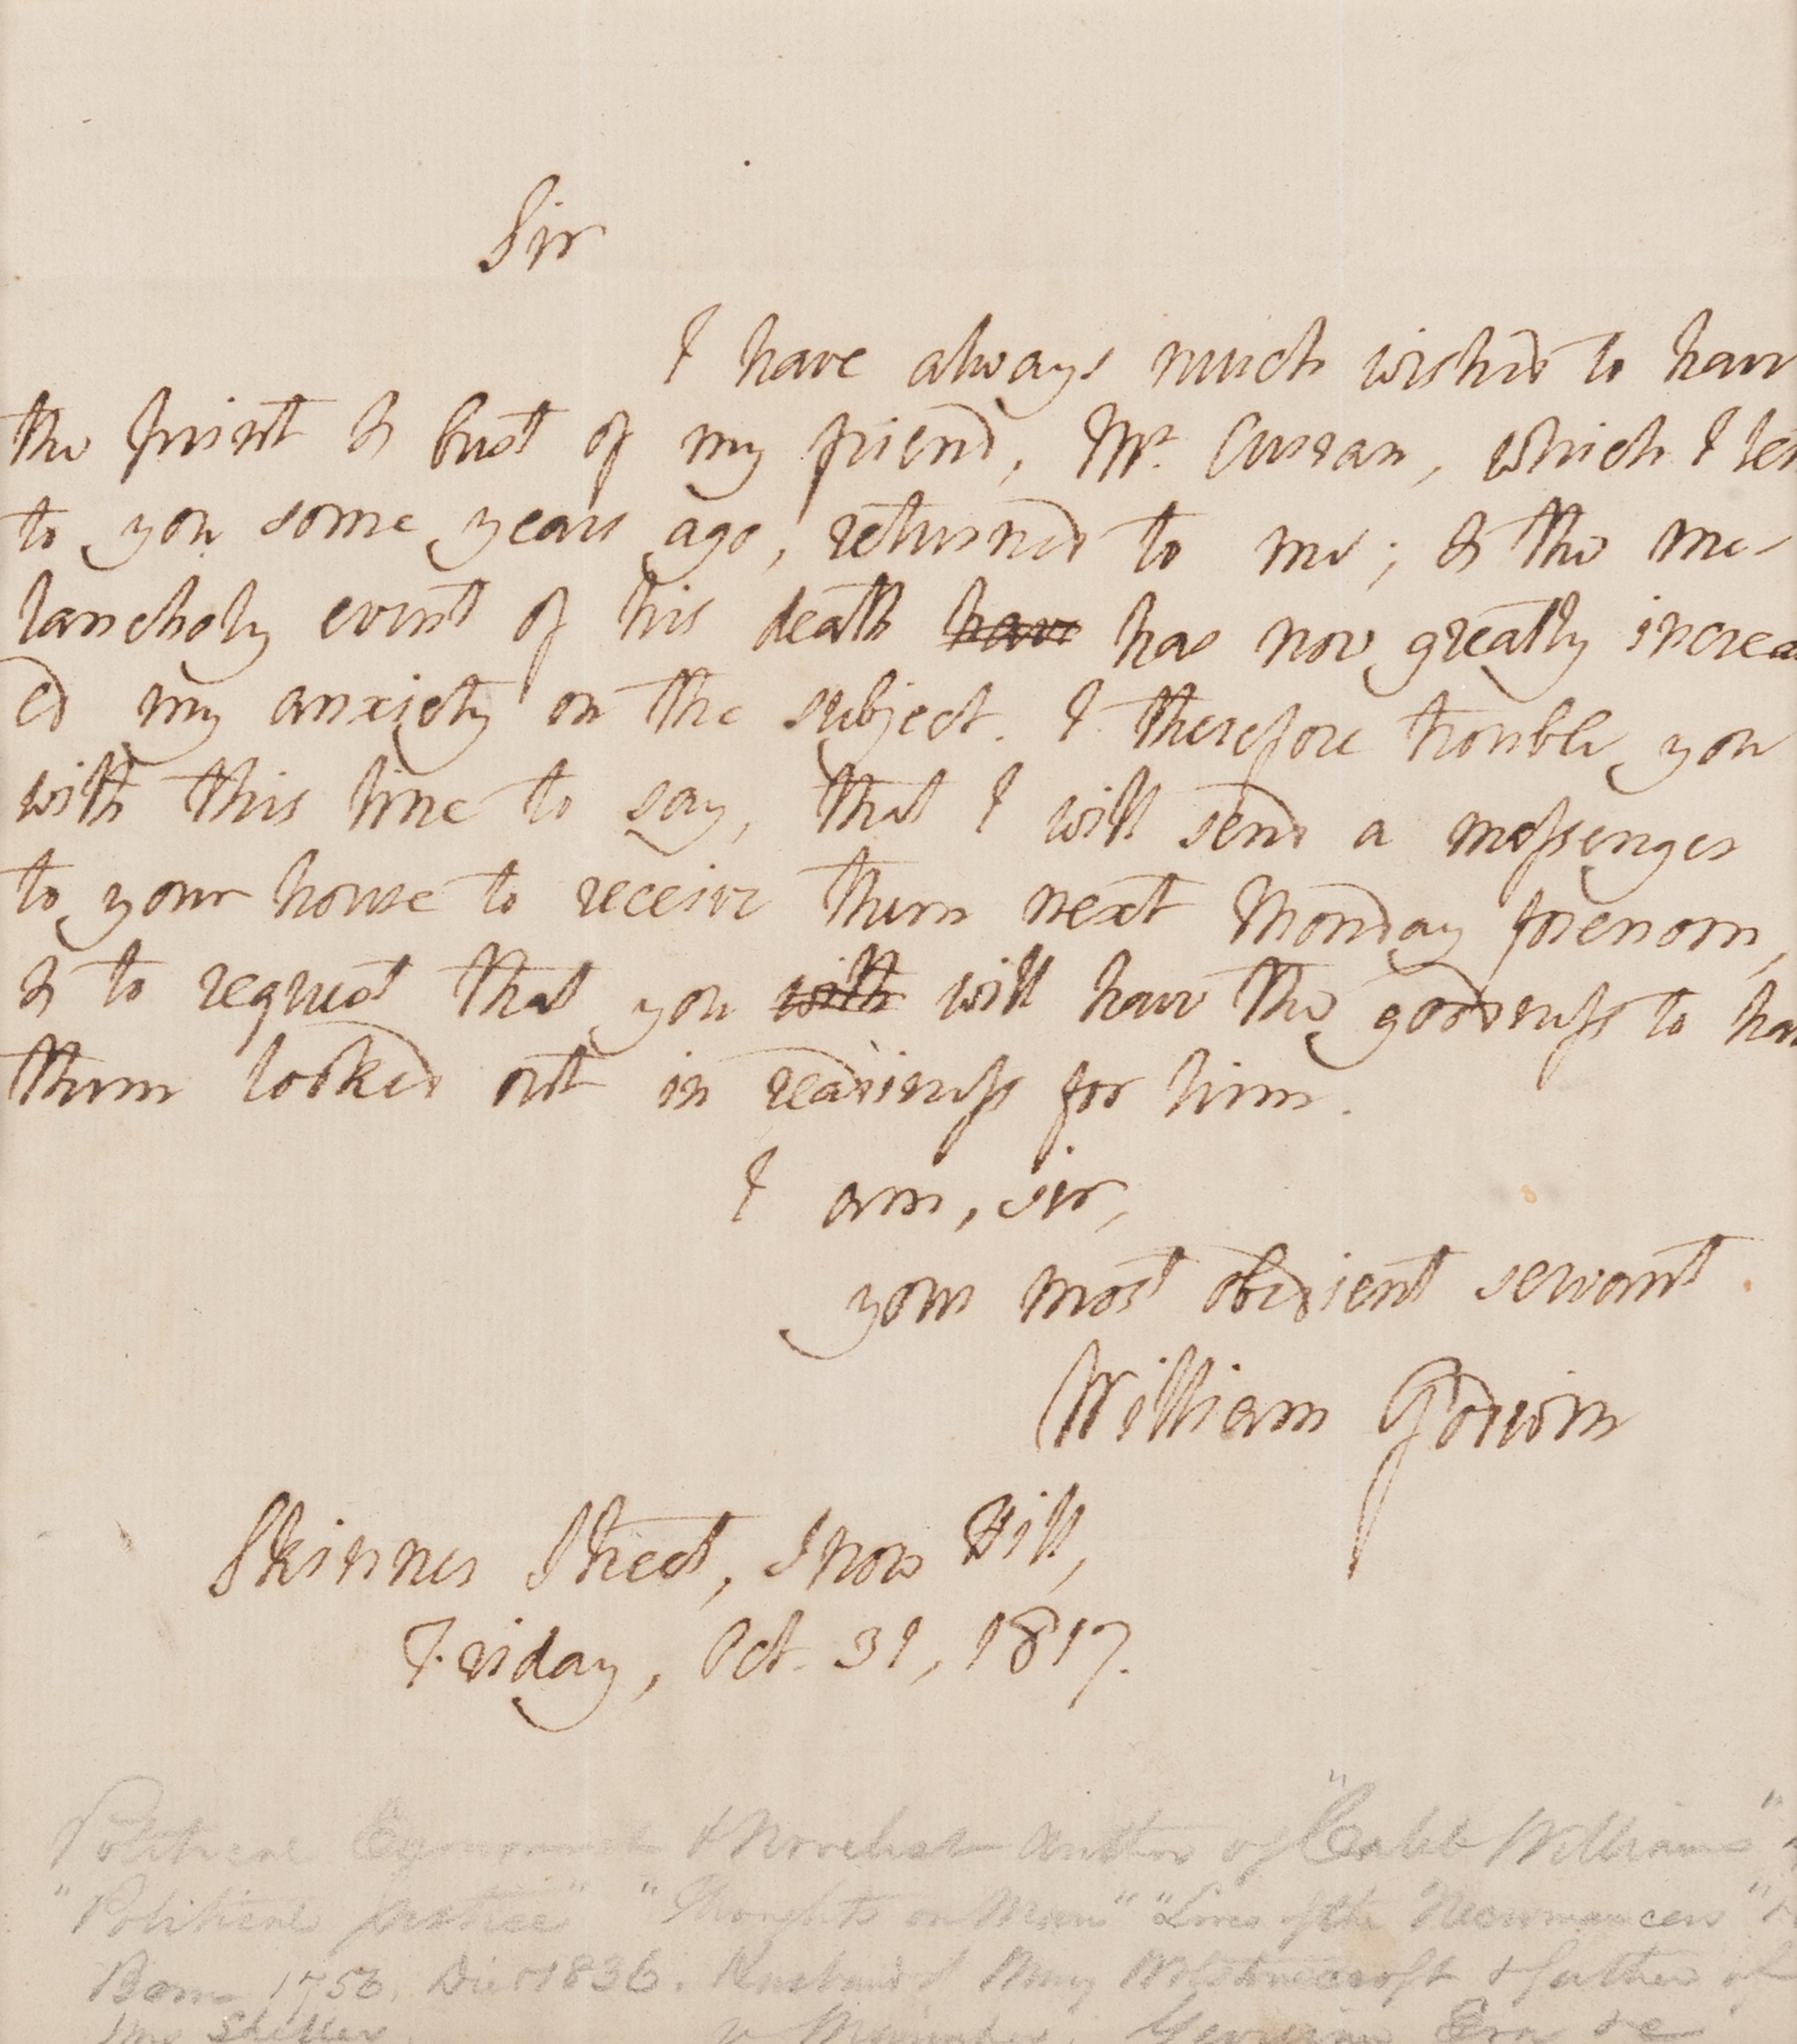 Sir
I have always much wished to have
the print & bust of my friend, Mr. Curran, which I len
to you some years ago, returned to me; & the me-
lancholy event of his death have has now greatly increa
ed my anxiety on the subject. I therefore trouble you
with this line to say, that I will send a messenger
to your house to receive them next Monday forenoon,
& to request that you with will have the goodness to ha
them looked out in readiness for him.
I am, sir,
your most obedient servant
William Godwin
Skinner Street, Snow Hill,
Friday, Oct. 31, 1817.
Political Economist & Novelist Author of "Caleb Williams"
"Political Justice" "Thoughts on Man" "Lives of the Necromancers"
Born 1756. Died 1836. Husband of Mary Wolstonecroft & father of
Mrs Shelley.